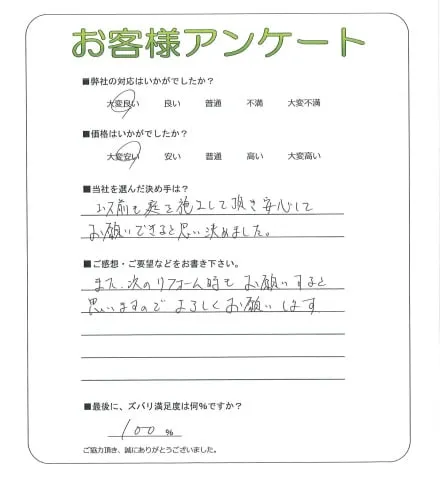 お客様アンケート
■弊社の対応はいかがでしたか?
大変良い 良い 普通 不満 大変不満
■価格はいかがでしたか?
大変安い 安い 普通 高い 大変高い
■当社を選んだ決め手は?
以前も庭を施工して頂き安心して
お願いできると思い決めました。
■ご感想・ご要望などをお書き下さい。
また、次のリフォーム時もお願いすると
思いますのでよろしくお願いします
■最後に、ズバリ満足度は何%ですか?
100 %
ご協力頂き、誠にありがとうございました。